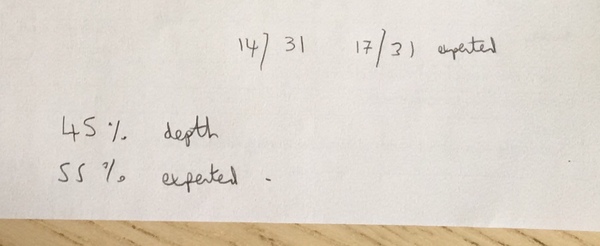 14/31 17/31 expected
45% depth
55% expected.